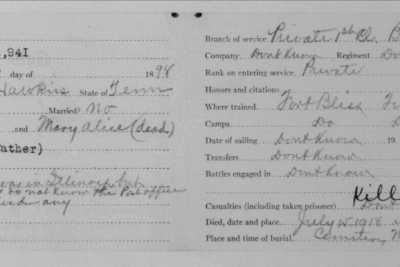 ,941
day of 1898
Hawkins State of Tenn
Married? No
and Mary Alice (dead)
ather)
was in Illinois but
do not know the Post office
any
Branch of service Private 1st Cl. B
Company Dont Know Regiment Do
Rank on entering service Private
Honors and citations
Where trained Fort Bliss
Camps Do D
Date of sailing Dont Know 19
Transfers Dont Know
Battles engaged in Dont Know
Kill
Casualties (including taken prisoner) Dont
Died, date and place July 15 1918
Place and time of burial Cemetery